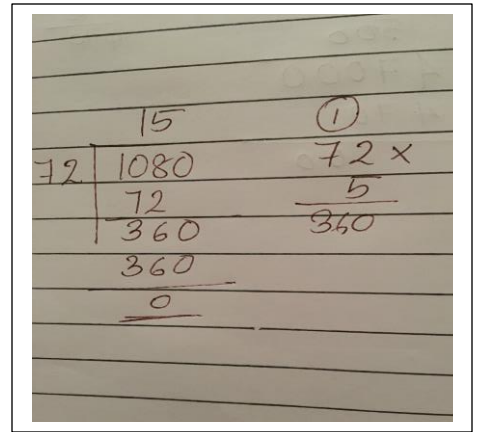 15
72 1080
72
360
360
0
1
72 ×
5
360